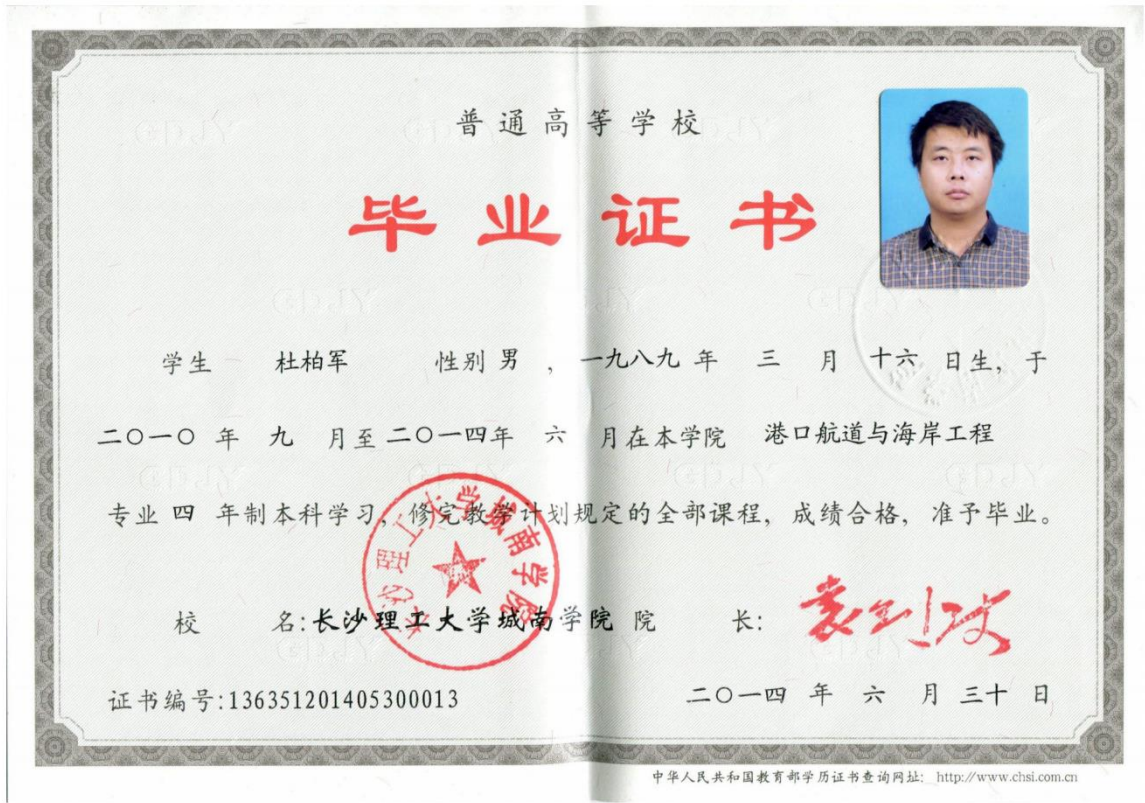 普通高等学校
毕业证书
学生 杜柏军 性别 男 , 一九八九 年 三 月 十六 日生, 于
二〇一〇 年 九 月至 二〇一四年 六 月在本学院 港口航道与海岸工程
专业 四 年制本科学习, 修完教学计划规定的全部课程, 成绩合格, 准予毕业。
长沙理工大学城南学院
校 名:长沙理工大学城南学院 院 长:
证书编号:136351201405300013
二〇一四 年 六 月 三十 日
中华人民共和国教育部学历证书查询网址: http://www.chsi.com.cn